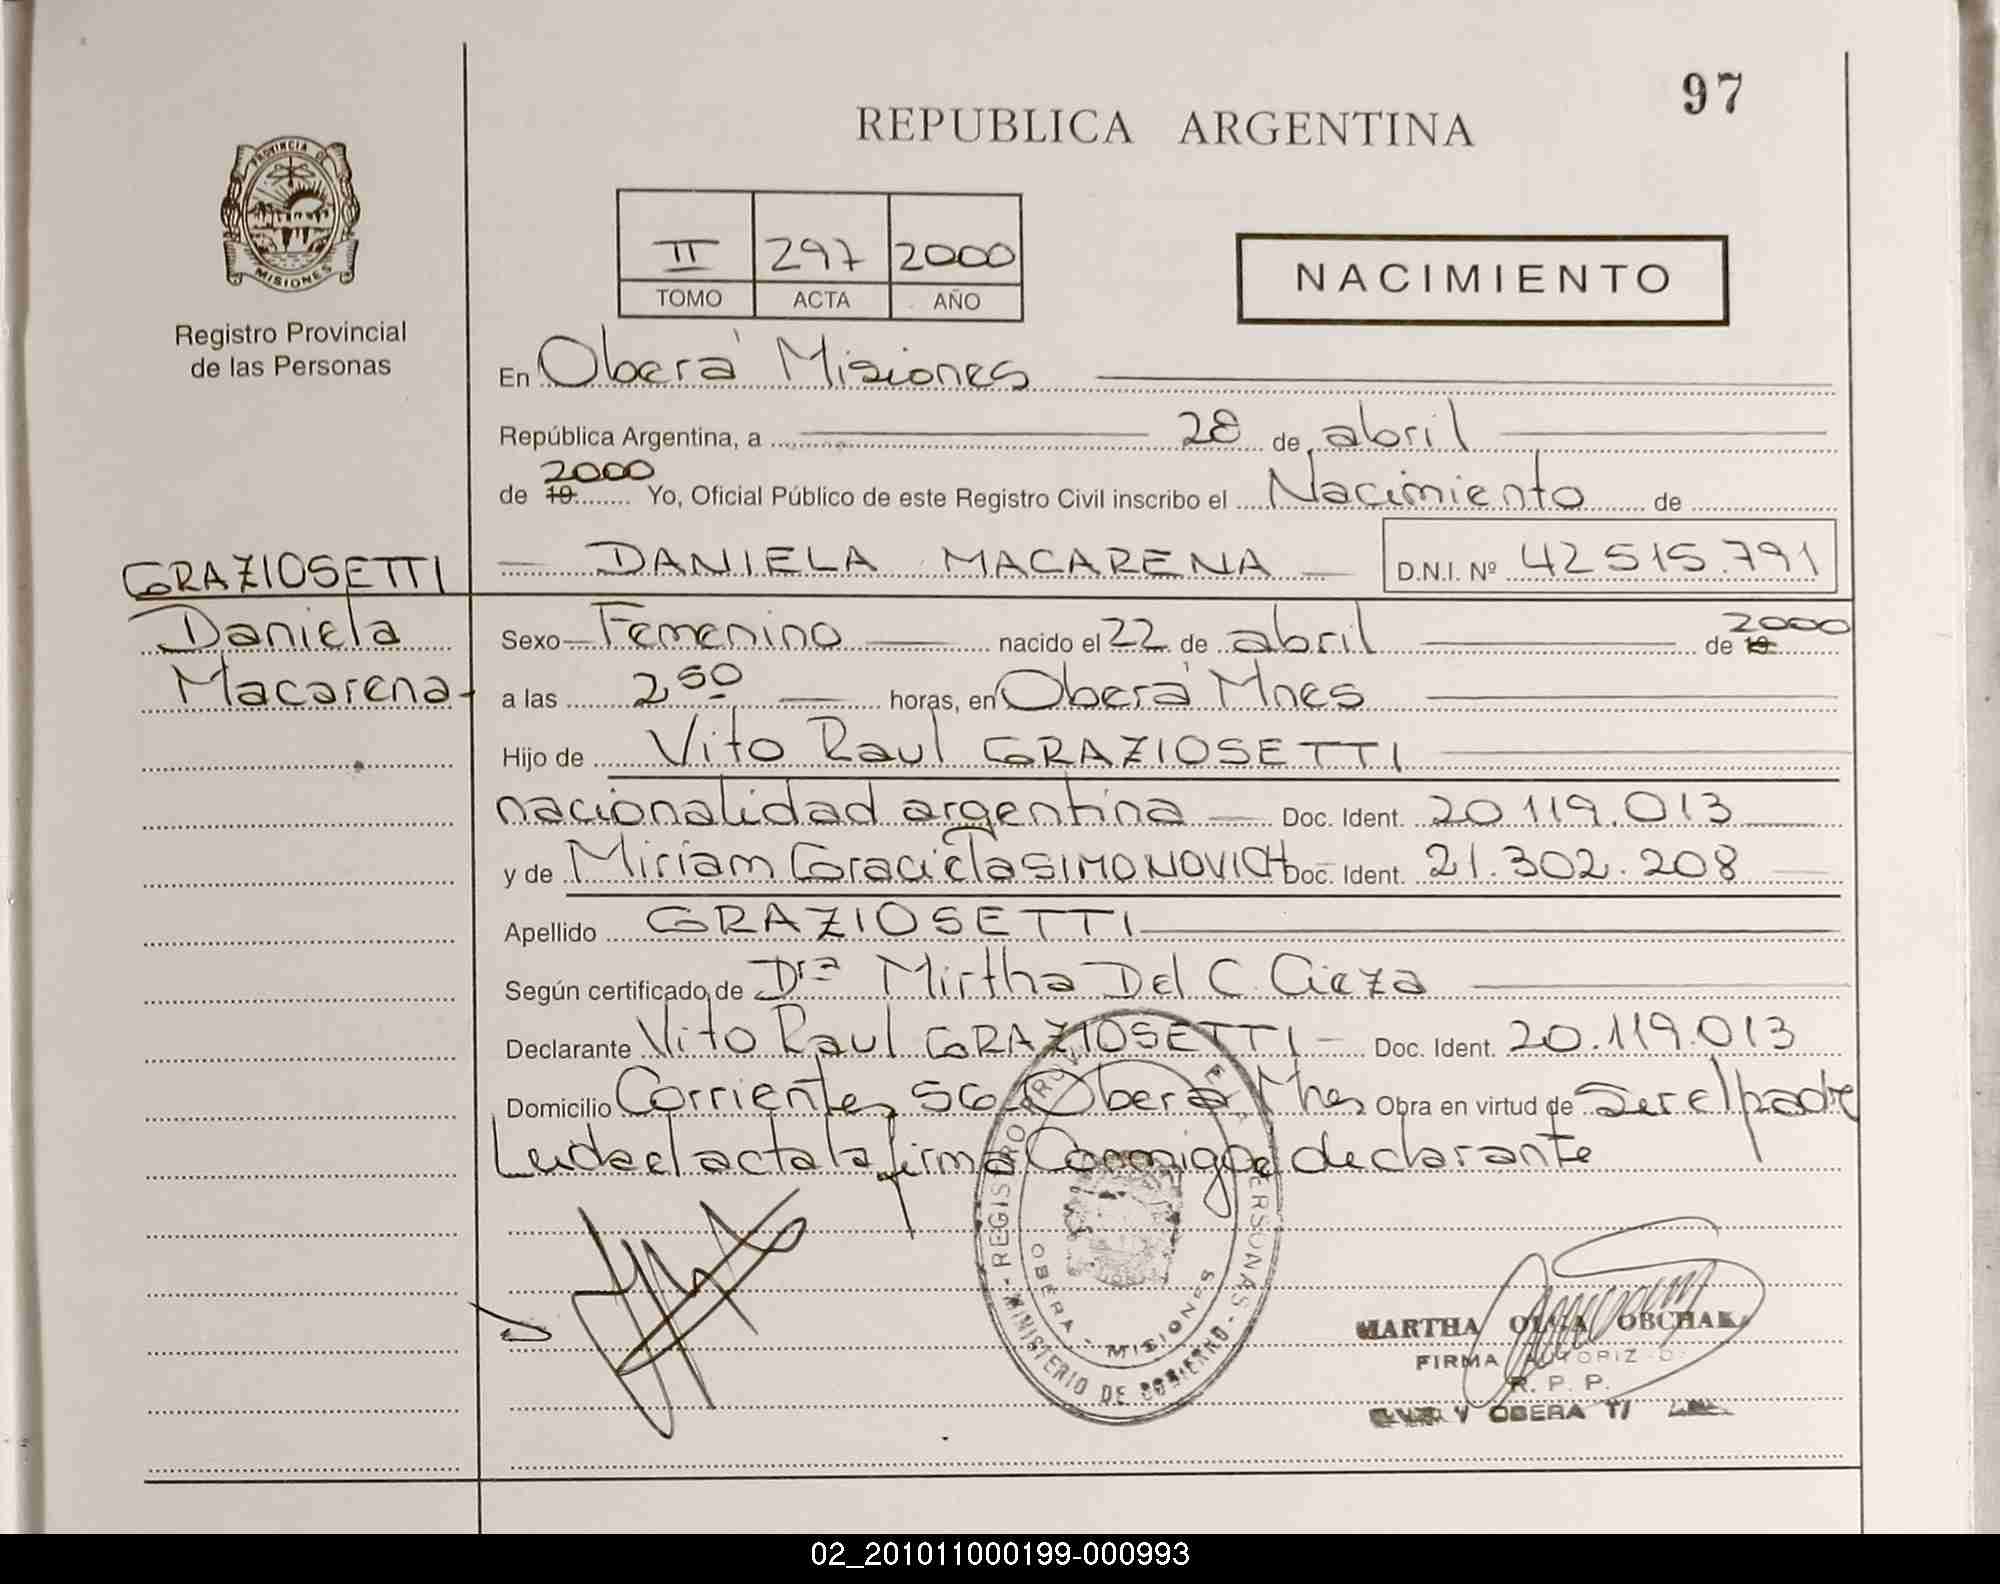 97
REPUBLICA ARGENTINA
PROVINCIA DE
MISIONES
Registro Provincial
de las Personas
II 297 2000
TOMO ACTA AÑO
NACIMIENTO
En Oberá Misiones
República Argentina, a 28 de abril
2000
de 19 Yo, Oficial Público de este Registro Civil inscribo el Nacimiento de
DANIELA MACARENA D.N.I. Nº 42 515.791
GRAZIOSETTI
Daniela
Macarena
Sexo Femenino nacido el 22 de abril de 19 2000
a las 2 50 horas, en Oberá Mnes
Hijo de Vito Raul GRAZIOSETTI
nacionalidad argentina Doc. Ident. 20 119.013
y de Miriam Graciela SIMONOVICH Doc. Ident. 21.302.208
Apellido GRAZIOSETTI
Según certificado de Drª Mirtha Del C. Cieza
Declarante Vito Raul GRAZIOSETTI Doc. Ident. 20.119.013
Domicilio Corrientes 56 Oberá Mnes Obra en virtud de ser el padre
Leida el acta la firma Conmigo el declarante
REGISTRO PERSONAS
MINISTERIO DE GOBIERNO
OBERA - MISIONES
MARTHA OLGA
FIRMA
R. P. P.
OBERA
02_201011000199-000993